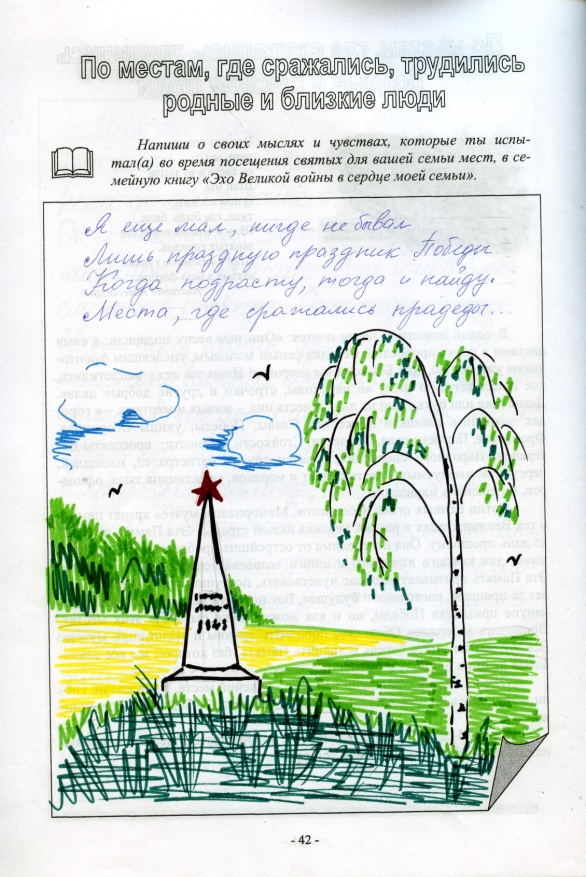 По местам, где сражались, трудились
родные и близкие люди
Напиши о своих мыслях и чувствах, которые ты испы-
тал(а) во время посещения святых для вашей семьи мест, в се-
мейную книгу «Эхо Великой войны в сердце моей семьи».
Я еще мал, нигде не бывал
Лишь праздную праздник Победы
Когда подрасту, тогда и найду.
Места, где сражались прадеды...
1945
- 42 -